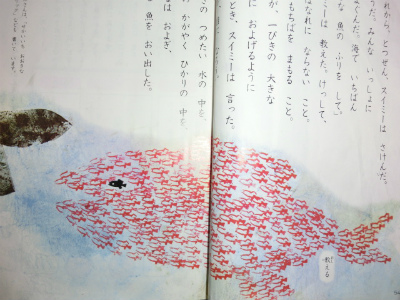 れから、とつぜん、スイミーは さけんだ。
うだ。みんな いっしょに
ぐんだ。海で いちばん
な 魚の ふりを して。」
ミーは 教えた。けっして、
なれに ならない こと。
もちばを まもる こと。
が、一ぴきの 大きな
に およげるように
とき、スイミーは 言った。
の つめたい 水の 中を、
の かがやく ひかりの 中を、
は およぎ、
魚を おい出した。
教える